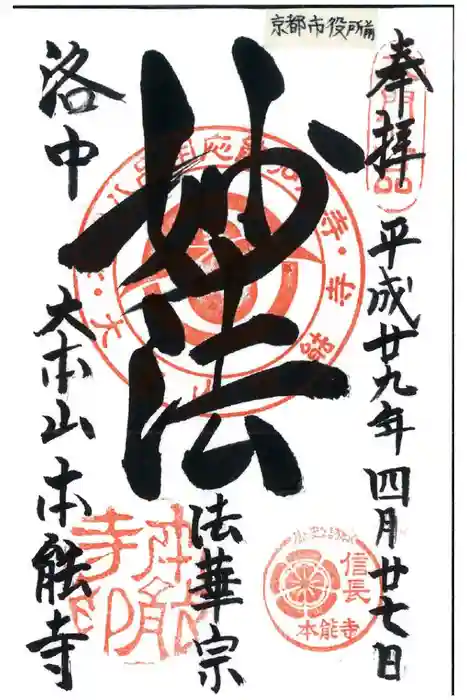 京都市役所前
奉拝
平成廿九年四月廿七日
妙法
法華宗
洛中
大本山本能寺
信長
本能寺
本能寺印